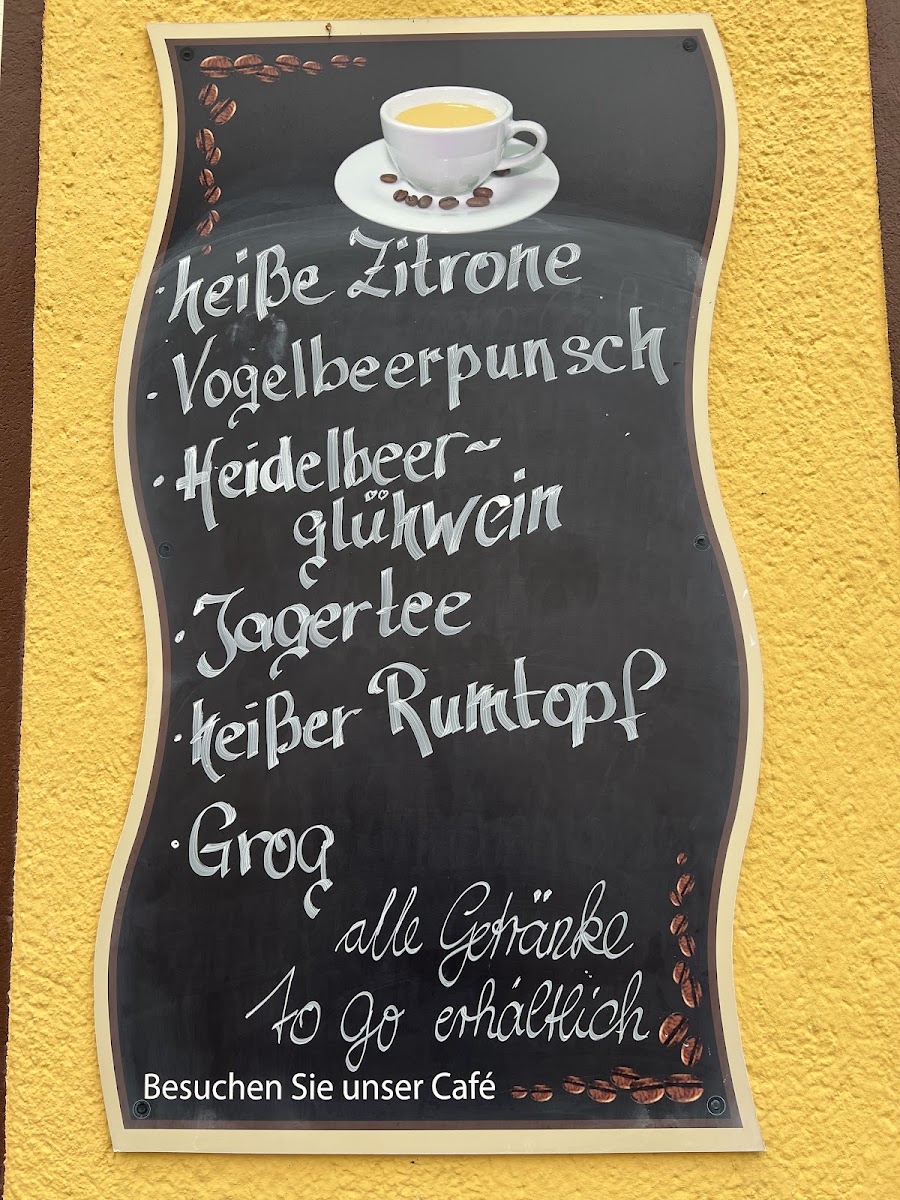 · heiße Zitrone
· Vogelbeerpunsch
· Heidelbeer~
glühwein
· Jagertee
· heißer Rumtopf
· Grog
alle Getränke
to go erhältlich
Besuchen Sie unser Café